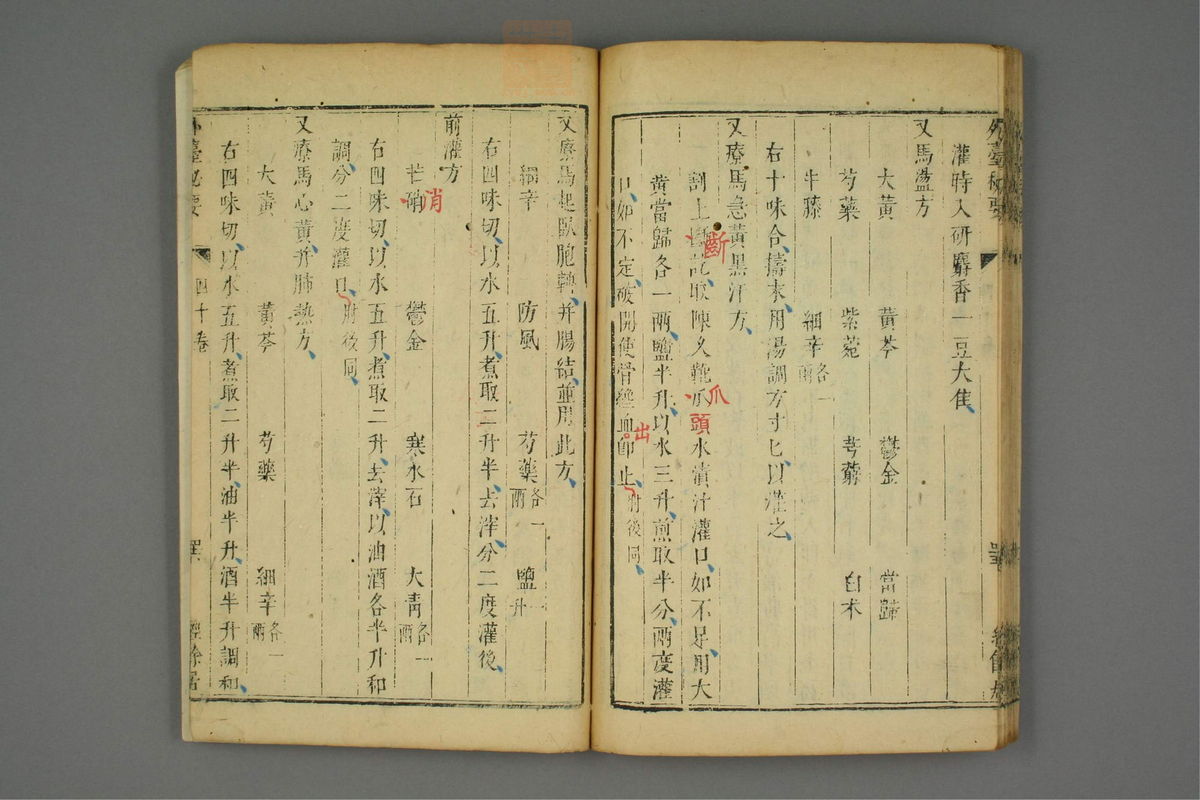 灌時入研麝香一豆大佳
又馬盪方
大黃 黃芩 鬱金 當歸
芍藥 紫菀 芎藭 白朮
牛膝 細辛各一兩
右十味合擣末用湯調方寸匕以灌之
又療馬急黃黑汗方
割上斷訖取陳久靴爪頭水漬汁灌口如不足用大
黃當歸各一兩鹽半升以水三升煎取半分兩度灌
口如不定破開使骨縫血出即止肘後同
外臺秘要
又療馬起臥胞轉并腸結並用此方
細辛 防風 芍藥各一兩 鹽一升
右四味切以水五升煮取二升半去滓分二度灌後
前灌方
芒硝 消 鬱金 寒水石 大靑各一兩
右四味切以水五升煮取二升去滓以油酒各半升和
調分二度灌口肘後同
又療馬心黃并肺熱方
大黃 黃芩 芍藥 細辛各一兩
右四味切以水五升煮取二升半油半升酒半升調和
外臺秘要 四十卷 經餘居